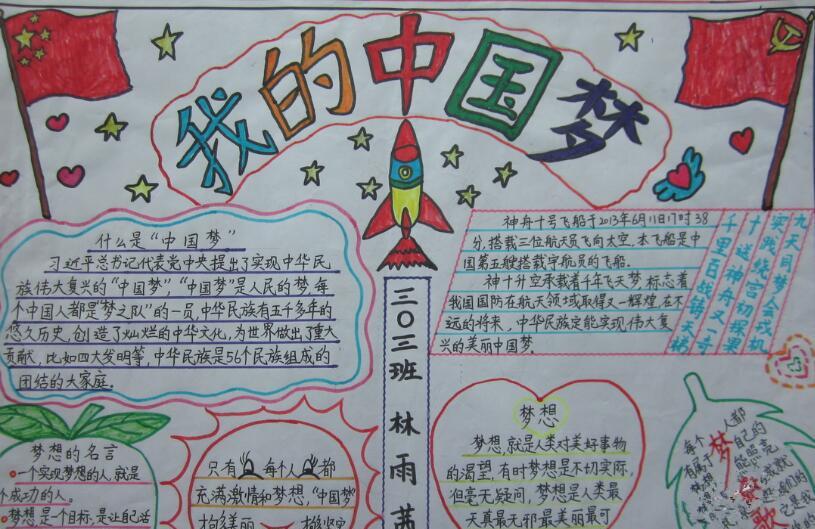 我的中国梦
什么是“中国梦”
习近平总书记代表党中央提出了实现中华民
族伟大复兴的“中国梦”,“中国梦”是人民的梦,每
个中国人都是“梦之队”的一员,中华民族有五千多年的
悠久历史,创造了灿烂的中华文化,为世界做出了重大
贡献,比如四大发明等,中华民族是56个民族组成的
团结的大家庭。
三〇三班 林雨茜
神舟十号飞船于2013年6月11日17时38
分,搭载三位航天员飞向太空.本飞船是中
国第五艘搭载宇航员的飞船.
神十升空承载着千年飞天梦,标志着
我国国防在航天领域取得又一辉煌,在不
远的将来,中华民族定能实现伟大复
兴的美丽中国梦.
九天同梦会战机
实践绕宫初探果
十送神舟又一奇
千里百战铸天梯
梦想的名言
一个实现梦想的人,就是
个成功的人。
梦想是一个目标,是让自己活
只有每个人都
充满激情和梦想,“中国梦”
梦想
梦想,就是人类对美好事物
的渴望,有时梦想是不切实际,
但毫无疑问,梦想是人类最
天真最无邪最美丽最可
每个人都
有属于自己的
梦